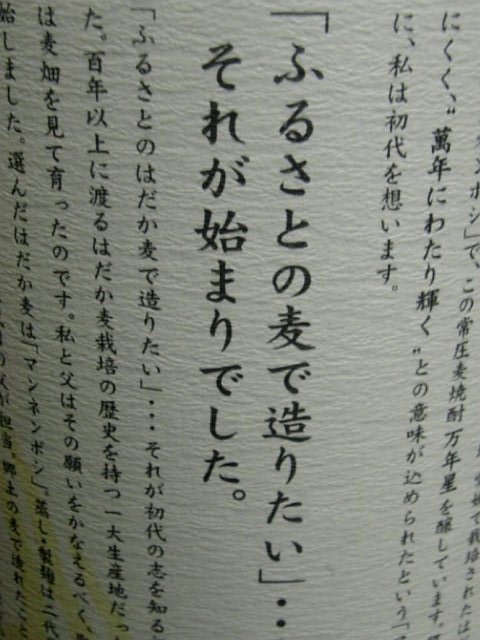 で栽培された
ンボシ」で、この常圧麦焼酎万年星を醸しています。
にくく、〝萬年にわたり輝く〟との意味が込められたという「
に、私は初代を想います。
「ふるさとの麦で造りたい」・・
それが始まりでした。
「ふるさとのはだか麦で造りたい」・・・それが初代の志を知る
た。百年以上に渡るはだか麦栽培の歴史を持つ一大生産地だっ
は麦畑を見て育ったのです。私と父はその願いをかなえるべく、
始しました。選んだはだか麦は「マンネンボシ」。蒸し・製麹は二代
が担当。郷土の麦で造れたこと